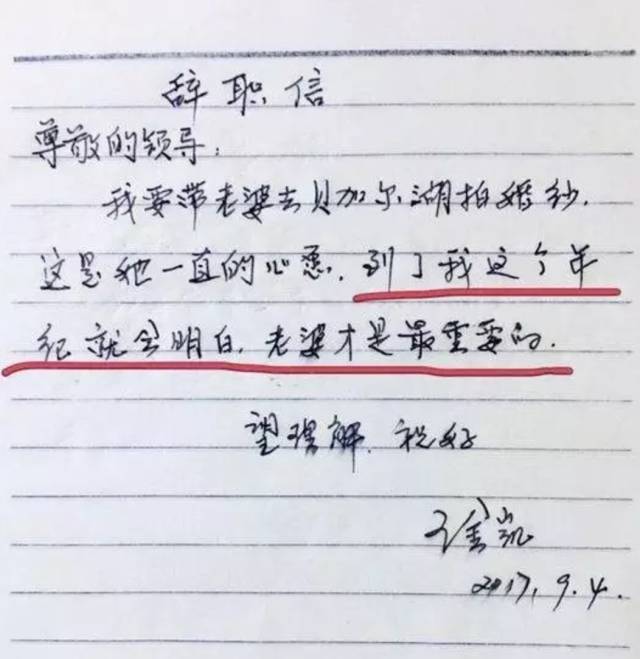 辞职信
尊敬的领导:
我要带老婆去贝加尔湖拍婚纱.
这是她一直的心愿.到了我这个年
纪就会明白.老婆才是最重要的.
望理解.祝好
徐凯
2017.9.4.